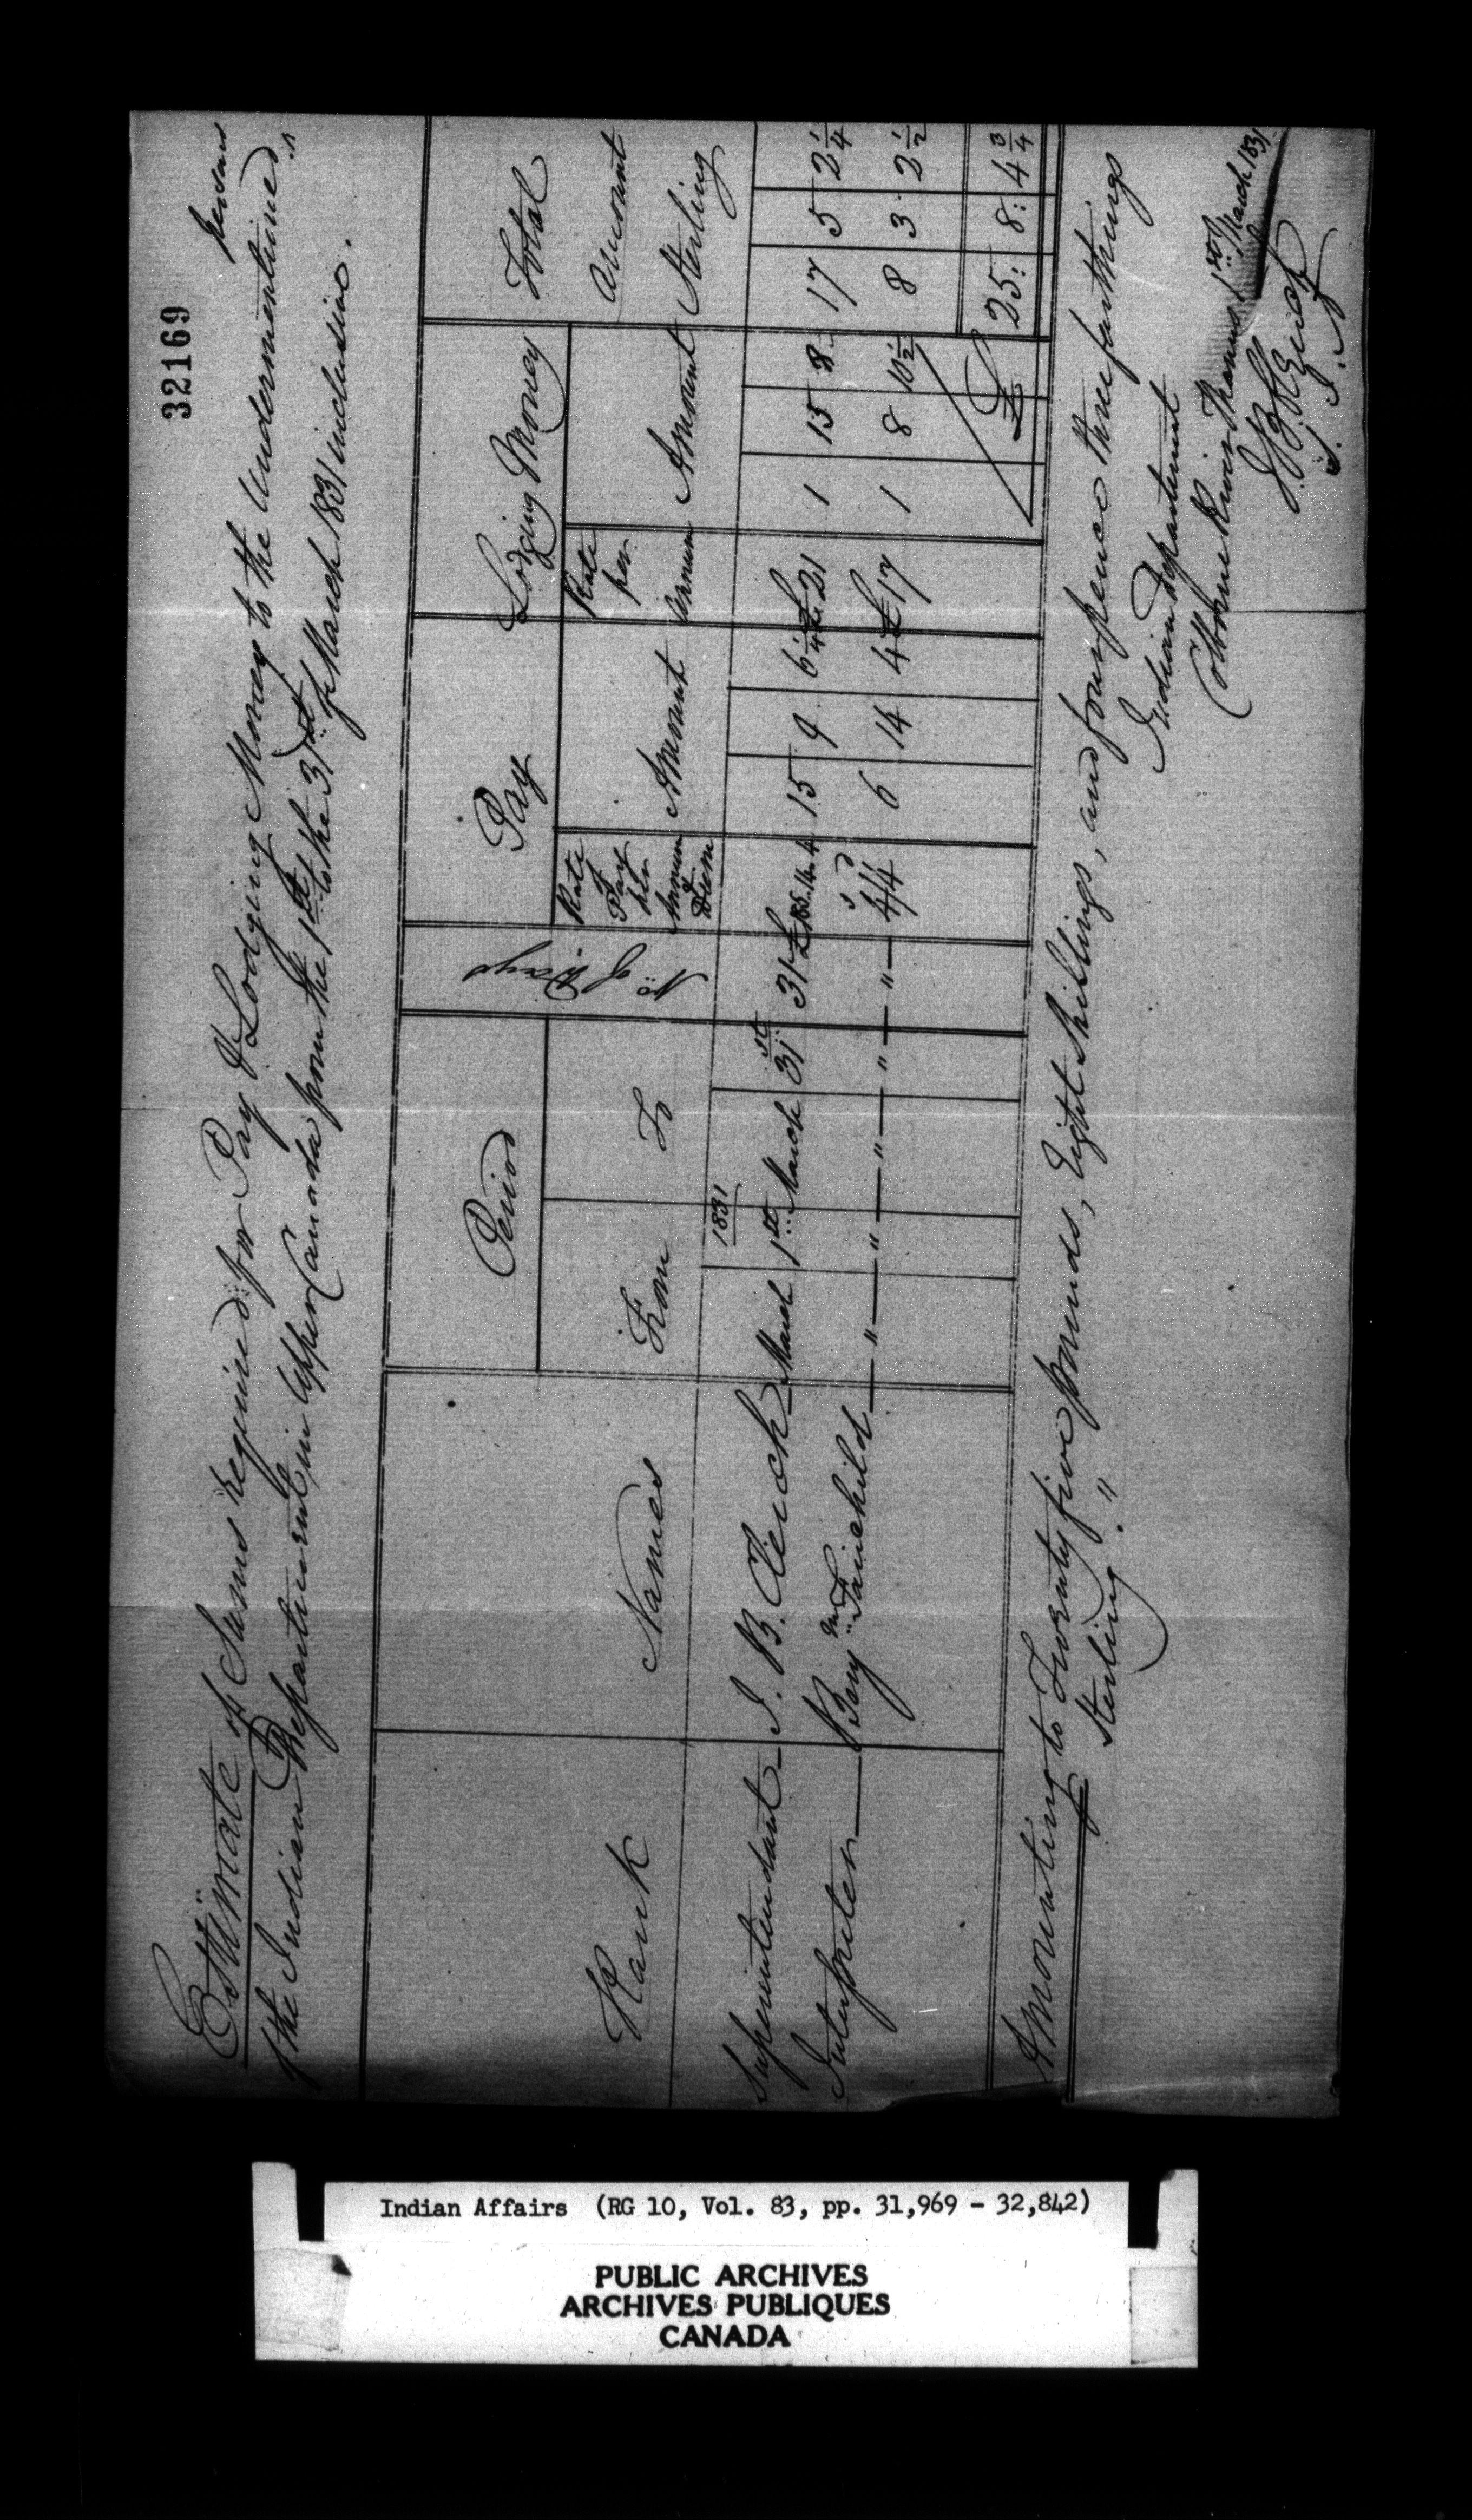 32169
Estimate of Sums required for Pay & Lodging Money to the Undermentioned persons
of the Indian Department in Upper Canada from the 1st to the 31st of March 1831 inclusive.
Rank
Names
Period
From
To
No. of Days
Pay
Rate of Pay per Annum & Diem
Amount
Lodging Money
Rate per Annum
Amount
Total Amount Sterling
1831
Superintendant J. B. Clench March 1st March 31st 31 £185.14.4 15 9 6 1/4 £21 1 15 8 17 5 2 1/4
Interpreter Benj.n Fairchild " " " " " s d 4/4 6 14 4 £17 1 8 10 1/2 8 3 2 1/2
£ 25: 8: 4 3/4
Amounting to Twenty five pounds, Eight Shillings, and fourpence three farthings
Sterling. "
Indian Department
Colborne River Thames 1st March 1831
J. B. Clench
S. I. A.
Indian Affairs (RG 10, Vol. 83, pp. 31,969 - 32,842)
PUBLIC ARCHIVES
ARCHIVES PUBLIQUES
CANADA